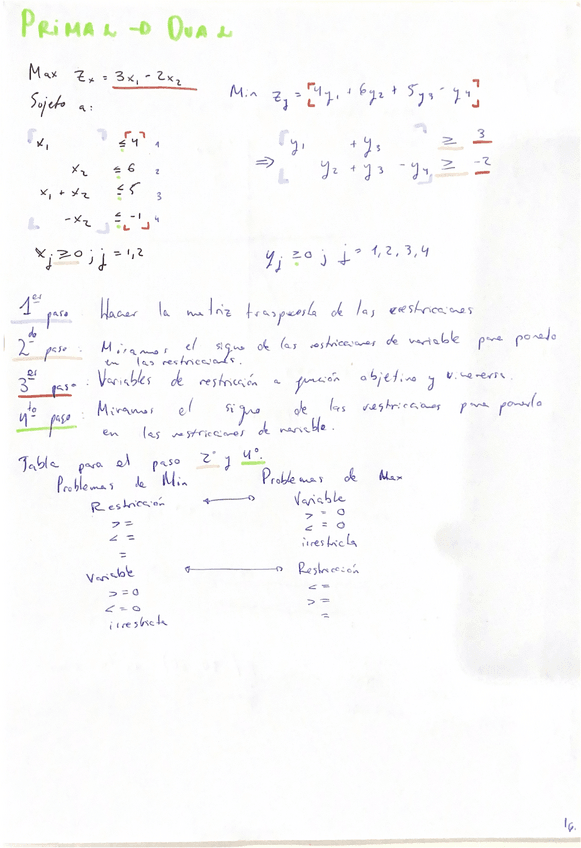 PRIMAL → DUAL
Max Zx = 3x₁ - 2x₂
Sujeto a:
x₁ ≤ 4 1
x₂ ≤ 6 2
x₁ + x₂ ≤ 5 3
-x₂ ≤ -1 4
xj ≥ 0 ; j = 1,2
Min Zy = [4y₁ + 6y₂ + 5y₃ - y₄]
⇒ y₁ + y₃ ≥ 3
y₂ + y₃ - y₄ ≥ -2
yj ≥ 0 ; j = 1, 2, 3, 4
1er paso Hacer la matriz traspuesta de las restricciones
2do paso: Miramos el signo de las restricciones de variable para ponerlo
en las restricciones.
3er paso: Variables de restricción a función objetivo y viceversa.
4to paso: Miramos el signo de las restricciones para ponerlo
en las restricciones de variable.
Tabla para el paso 2º y 4º.
Problemas de Min Problemas de Max
Restricción ↔ Variable
>= >= 0
<= <= 0
= irrestricta
Variable ↔ Restricción
>=0 <=
<=0 >=
irrestricta =
16.